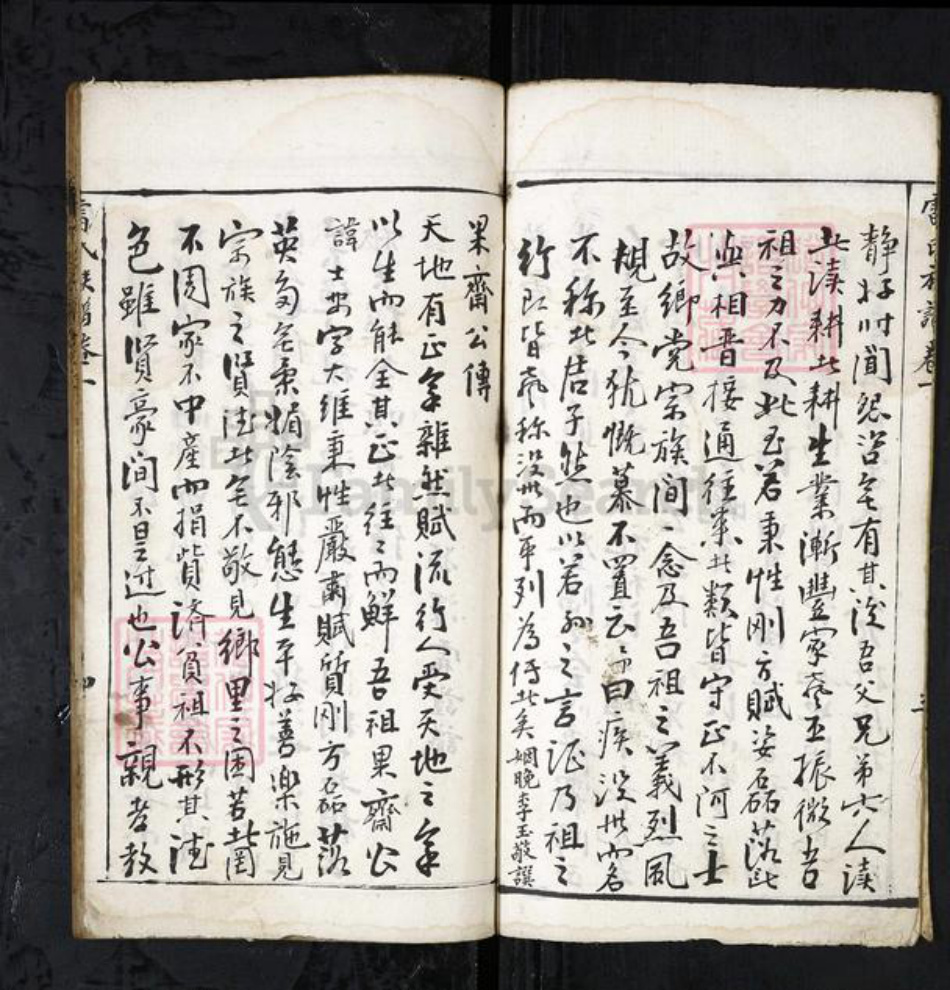 靜好時聞怨咨無有其後吾父兄弟六人讀
此讀耕此耕生業漸豐家聲丕振微吾
祖之力不及此至若秉性剛方賦姿磊落
與相晋接通往來此類皆守正不阿之士
故鄉党宗族間一念及吾祖之義烈風
規至今犹慨慕不置云子曰疾没世而名
不称此君子然也以若孙之言証乃祖之
行既皆嘉称没世而平列為传此矣 姻晚李玉敬譔
果齋公傳
天地有正氣雜然賦流行人受天地之氣
以生而能全其正此往之而鮮吾祖果齋公
諱士字大維秉性嚴肅賦質剛方磊落
英多無柔媚陰邪態生平好善樂施見
宗族之賢德此無不敬見鄉里之困苦此罔
不周家不中產而捐貲濟貧祖不形其德
色雖賢豪間不是过也公事親孝教
氏族譜卷一
FamilySearch